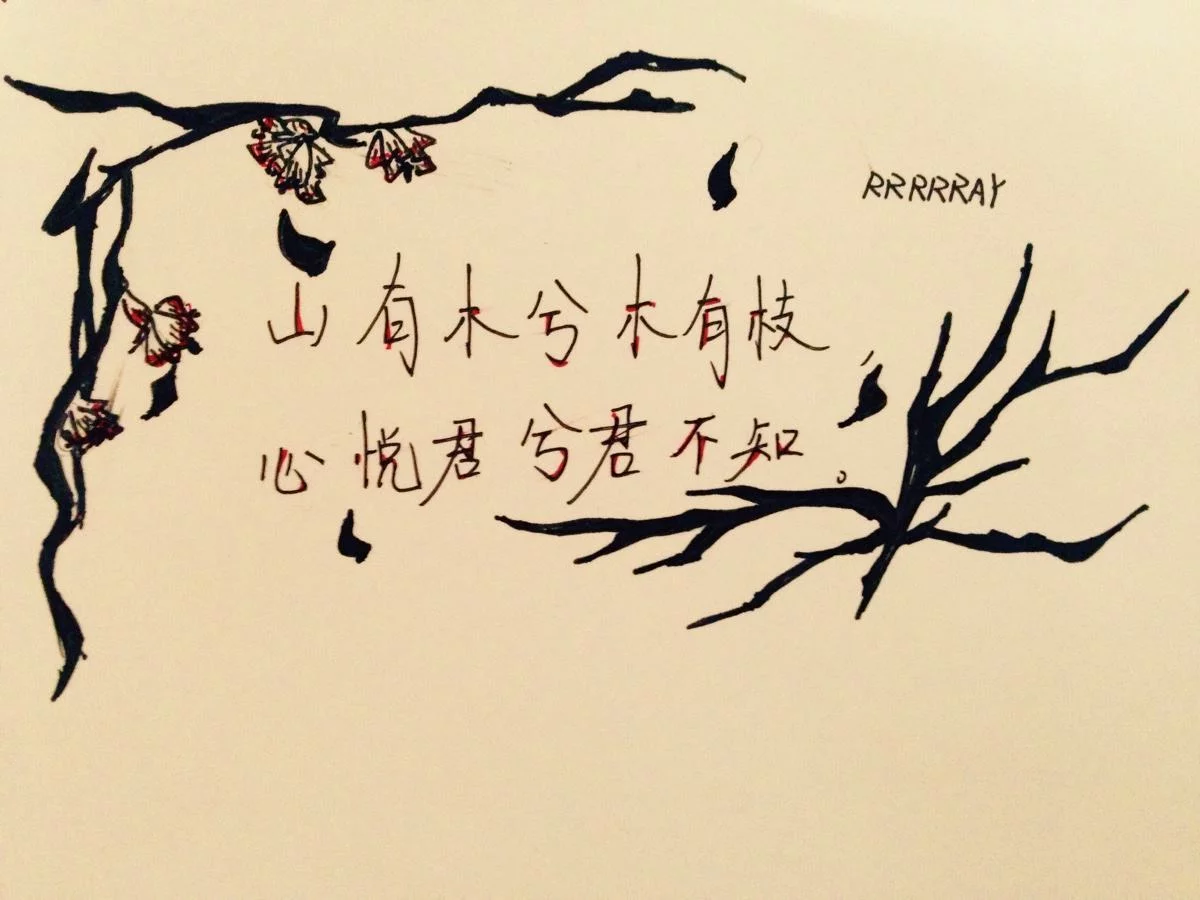 RRRRRAY
山有木兮木有枝,
心悦君兮君不知。